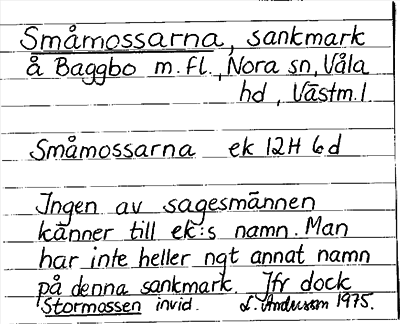 Småmossarna, sankmark
å Baggbo m.fl., Nora sn, Våla
hd, Västm.l
Småmossarna ek 12H 6d
Ingen av sagesmännen
känner till ek:s namn. Man
har inte heller ngt annat namn
på denna sankmark. Jfr dock
Stormossen invid. L. Andersson 1975.